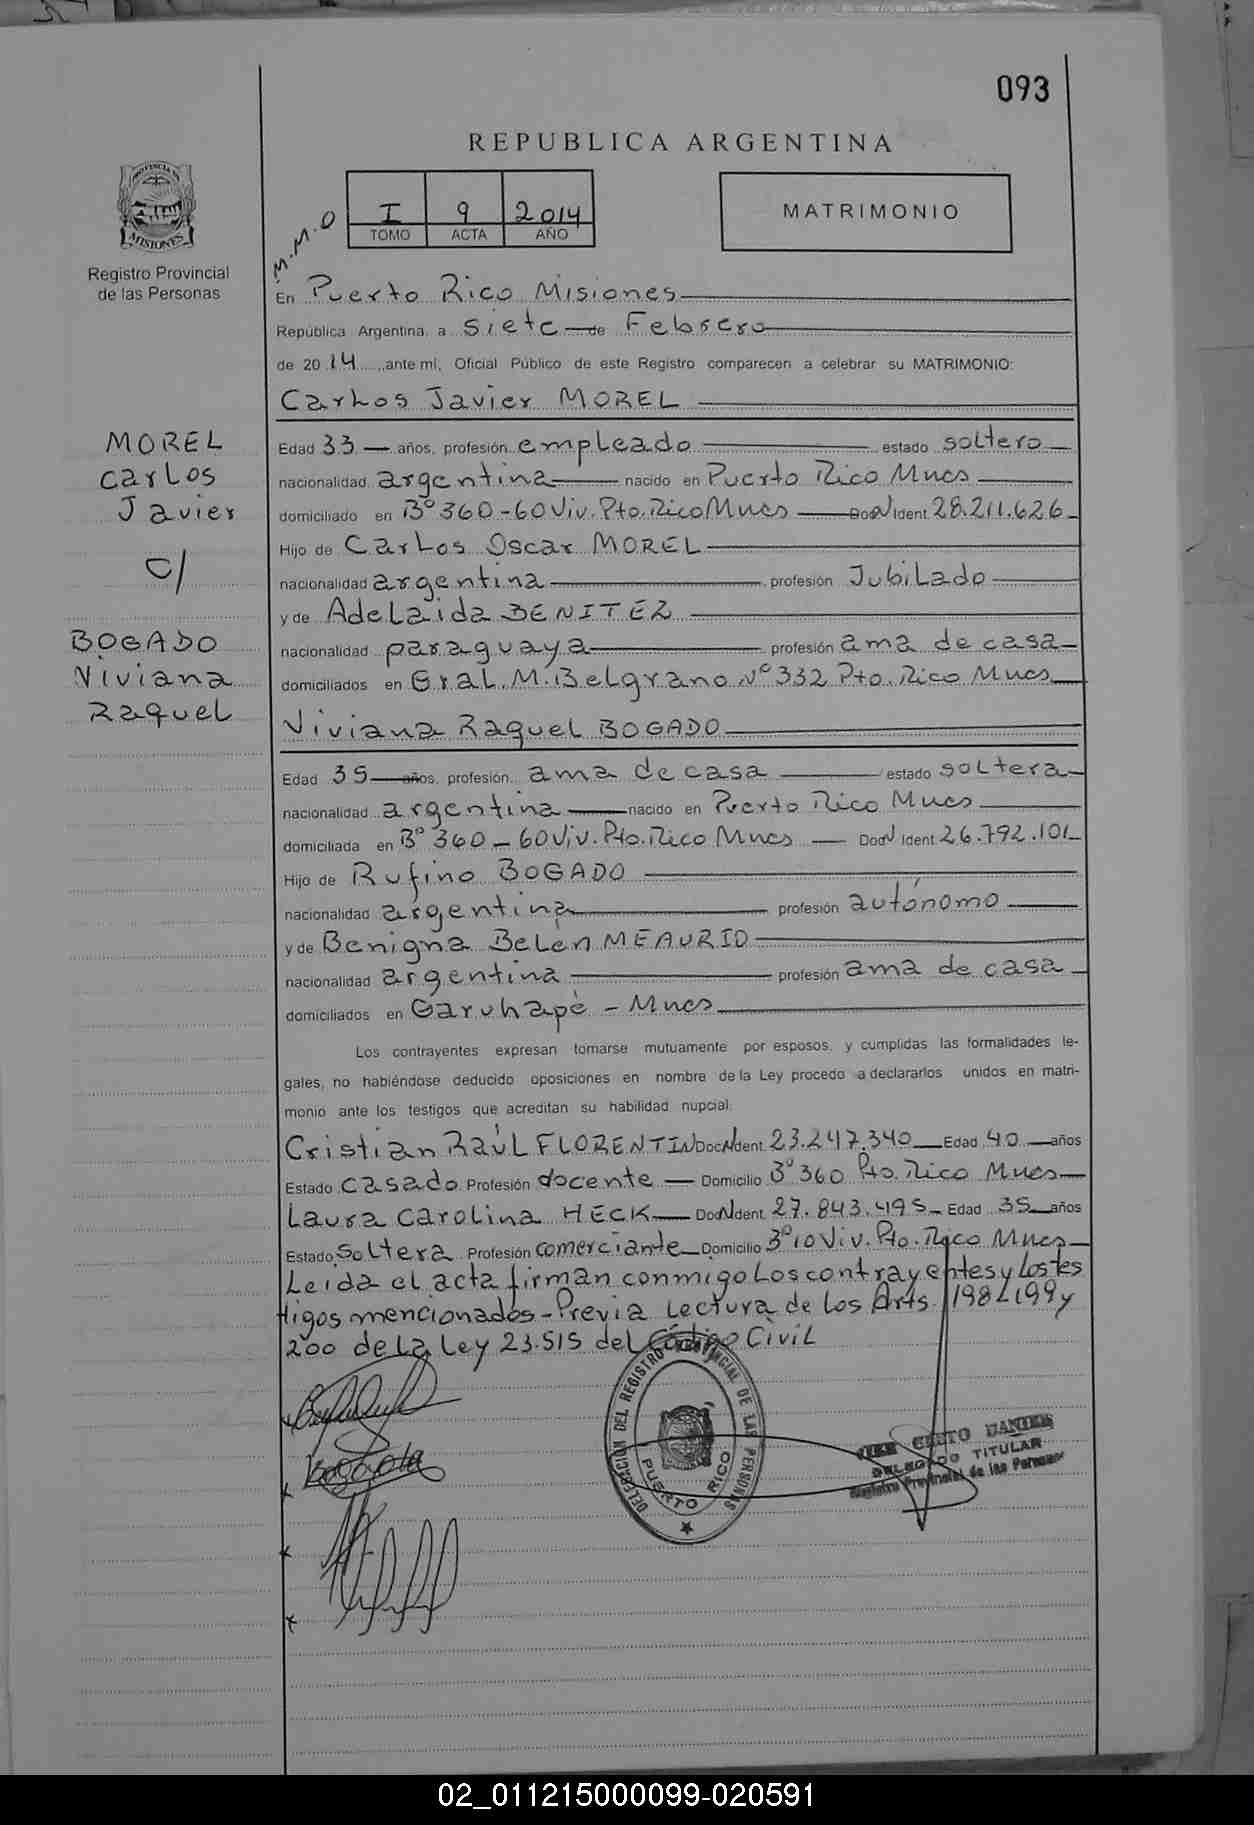 093
REPUBLICA ARGENTINA
PROVINCIA DE MISIONES
Registro Provincial
de las Personas
M.M.O
I 9 2014
TOMO ACTA AÑO
MATRIMONIO
En Puerto Rico Misiones
República Argentina, a siete de Febrero
de 2014, ante mí, Oficial Público de este Registro comparecen a celebrar su MATRIMONIO:
Carlos Javier MOREL
MOREL
Carlos
Javier
c/
BOGADO
Viviana
Raquel
Edad 33 años, profesión empleado estado soltero
nacionalidad argentina nacido en Puerto Rico Mnes
domiciliado en B° 360-60 Viv. Pto. Rico Mnes Doc N Ident 28.211.626
Hijo de Carlos Oscar MOREL
nacionalidad argentina profesión Jubilado
y de Adelaida BENITEZ
nacionalidad paraguaya profesión ama de casa
domiciliados en Gral. M. Belgrano N° 332 Pto. Rico Mnes
Viviana Raquel BOGADO
Edad 35 años, profesión ama de casa estado soltera
nacionalidad argentina nacido en Puerto Rico Mnes
domiciliada en B° 360-60 Viv. Pto. Rico Mnes Doc N Ident 26.792.101
Hijo de Rufino BOGADO
nacionalidad argentina profesión autónomo
y de Benigna Belen MEAURIO
nacionalidad argentina profesión ama de casa
domiciliados en Garuhapé - Mnes
Los contrayentes expresan tomarse mutuamente por esposos, y cumplidas las formalidades le-
gales, no habiéndose deducido oposiciones en nombre de la Ley procedo a declararlos unidos en matri-
monio ante los testigos que acreditan su habilidad nupcial:
Cristian Raúl FLORENTIN Doc N Ident. 23.247.340 Edad 40 años
Estado casado Profesión docente Domicilio B° 360 Pto. Rico Mnes
Laura Carolina HECK Doc N Ident. 27.843.495 Edad 35 años
Estado soltera Profesión comerciante Domicilio B° 10 Viv. Pto. Rico Mnes
Leida el acta firman conmigo los contrayentes y los tes
tigos mencionados - Previa Lectura de los Arts. 198-199 y
200 de la Ley 23.515 del Código Civil
DELEGACION DEL REGISTRO PROVINCIAL DE LAS PERSONAS
PUERTO RICO
DELEGADO TITULAR
Registro Provincial de las Personas
02_011215000099-020591